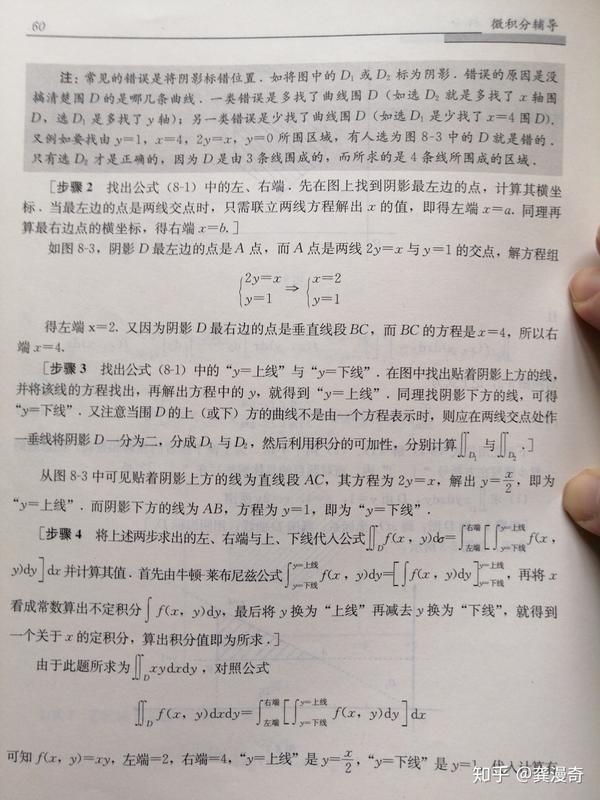 60 微积分辅导
注：常见的错误是将阴影标错位置．如将图中的 D₁ 或 D₂ 标为阴影．错误的原因是没
搞清楚围 D 的是哪几条曲线．一类错误是多找了曲线围 D（如选 D₂ 就是多找了 x 轴围
D，选 D₁ 是多找了 y 轴）；另一类错误是少找了曲线围 D（如选 D₁ 是少找了 x＝4 围 D）．
又例如要找由 y＝1，x＝4，2y＝x，y＝0 所围区域，有人选为图 8-3 中的 D 就是错的．
只有选 D₂ 才是正确的，因为 D 是由 3 条线围成的，而所求的是 4 条线所围成的区域．
［步骤 2 找出公式（8-1）中的左、右端．先在图上找到阴影最左边的点，计算其横坐
标．当最左边的点是两线交点时，只需联立两线方程解出 x 的值，即得左端 x＝a. 同理再
算最右边点的横坐标，得右端 x＝b.］
如图 8-3，阴影 D 最左边的点是 A 点，而 A 点是两线 2y＝x 与 y＝1 的交点，解方程组
{2y＝x ⇒ {x＝2
{y＝1 {y＝1
得左端 x＝2. 又因为阴影 D 最右边的点是垂直线段 BC，而 BC 的方程是 x＝4，所以右
端 x＝4.
［步骤 3 找出公式（8-1）中的“y＝上线”与“y＝下线”．在图中找出贴着阴影上方的线，
并将该线的方程找出，再解出方程中的 y，就得到“y＝上线”．同理找阴影下方的线，可得
“y＝下线”．又注意当围 D 的上（或下）方的曲线不是由一个方程表示时，则应在两线交点处作
一垂线将阴影 D 一分为二，分成 D₁ 与 D₂，然后利用积分的可加性，分别计算∬_{D₁} 与∬_{D₂}．］
从图 8-3 中可见贴着阴影上方的线为直线段 AC，其方程为 2y＝x，解出 y＝x/2，即为
“y＝上线”．而阴影下方的线为 AB，方程为 y＝1，即为“y＝下线”．
［步骤 4 将上述两步求出的左、右端与上、下线代入公式∬_D f(x，y)dσ＝∫_{左端}^{右端}[∫_{y＝下线}^{y＝上线} f(x，
y)dy]dx 并计算其值．首先由牛顿-莱布尼兹公式∫_{y＝下线}^{y＝上线} f(x，y)dy＝[∫f(x，y)dy]_{y＝下线}^{y＝上线}，再将 x
看成常数算出不定积分∫ f(x，y)dy，最后将 y 换为“上线”再减去 y 换为“下线”，就得到
一个关于 x 的定积分，算出积分值即为所求．］
由于此题所求为∬_D xydxdy，对照公式
∬_D f(x，y)dxdy＝∫_{左端}^{右端}[∫_{y＝下线}^{y＝上线} f(x，y)dy]dx
可知 f(x，y)＝xy，左端＝2，右端＝4，“y＝上线”是 y＝x/2，“y＝下线”是 y＝1．代入计算有
知乎 @龚漫奇